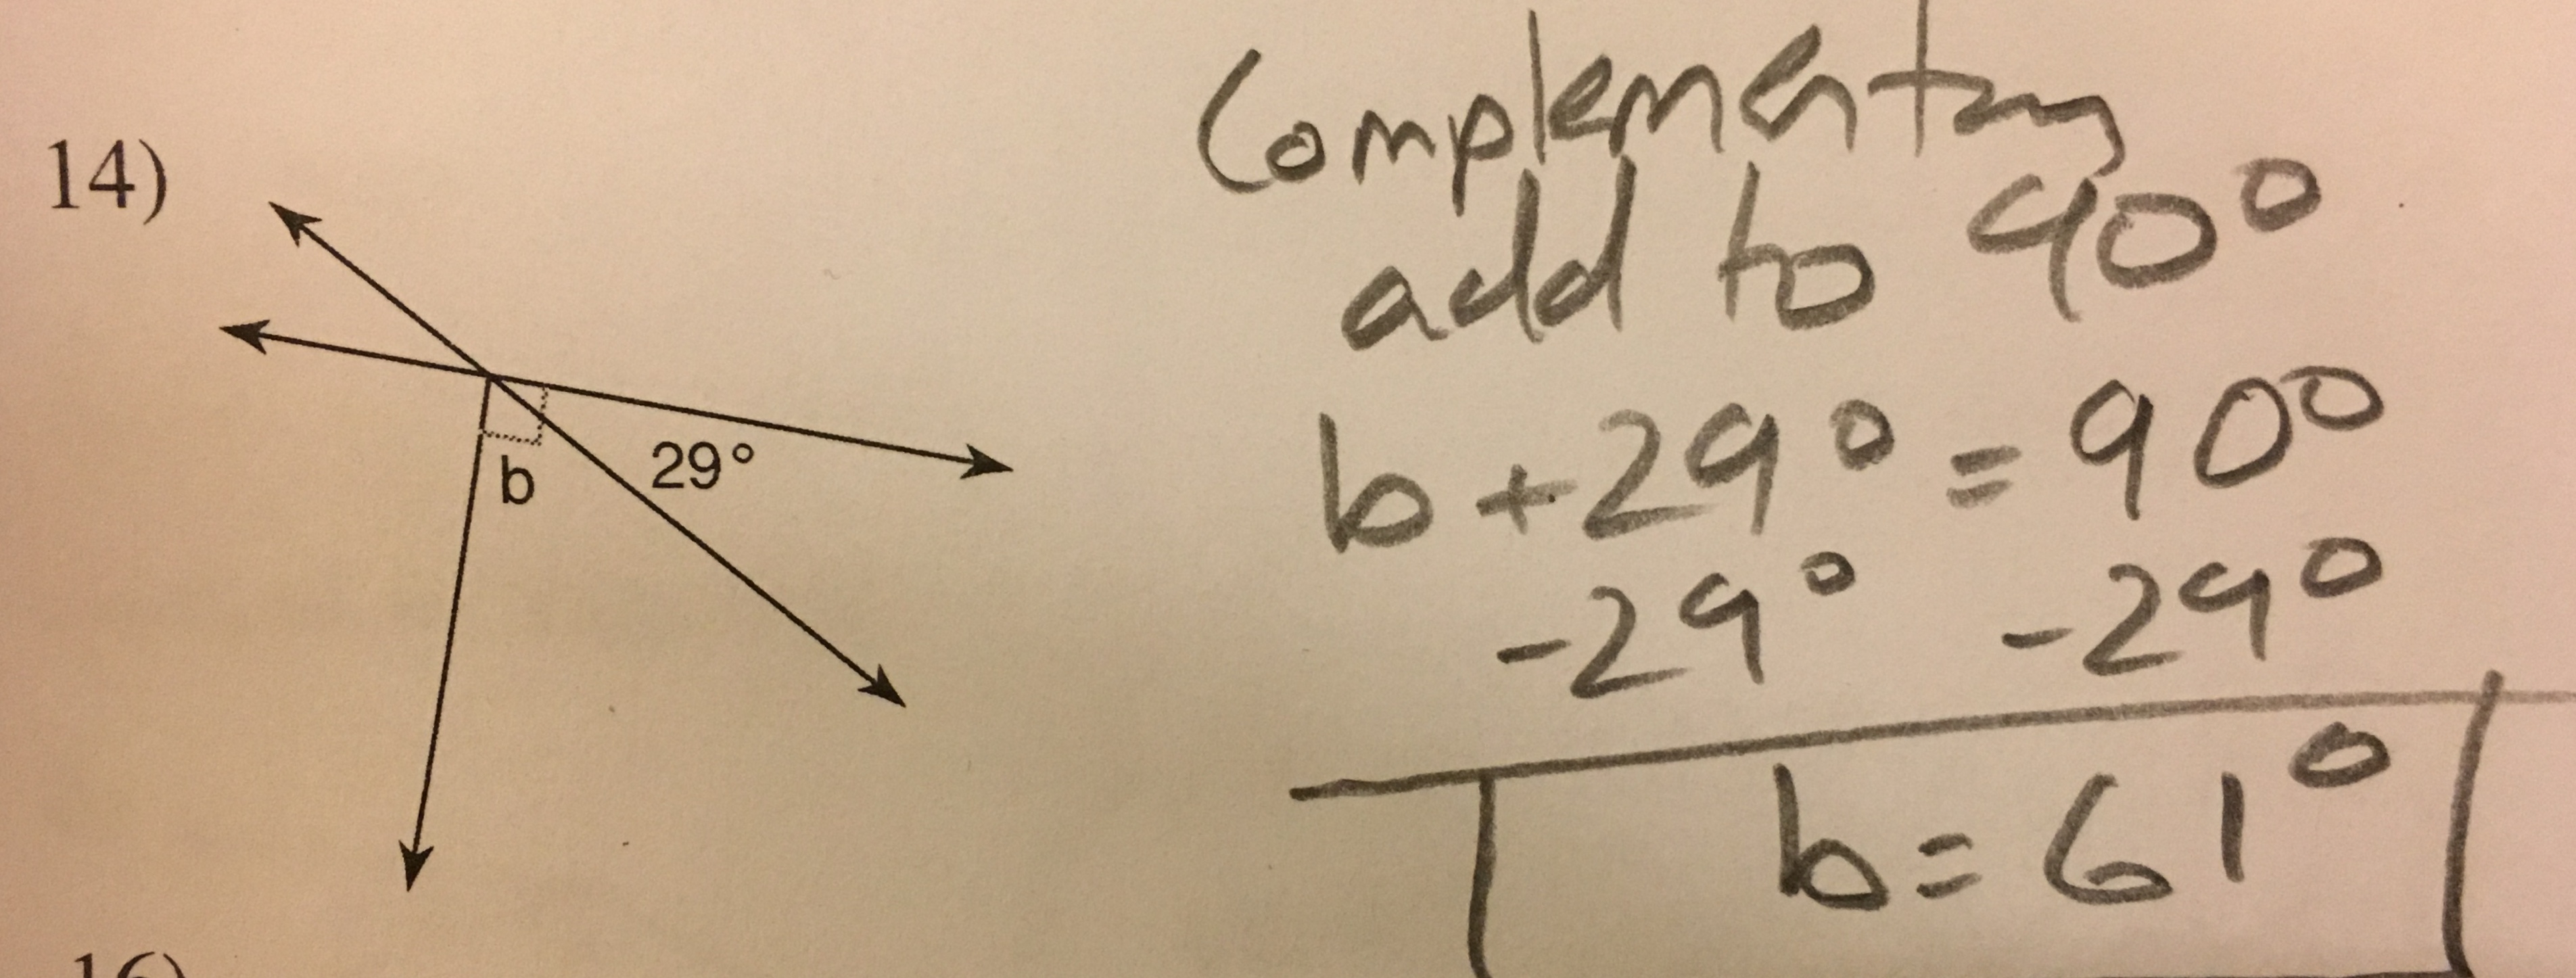 14)
b
29°
Complementary
add to 90°
b + 29° = 90°
-29° -29°
b = 61°
16)